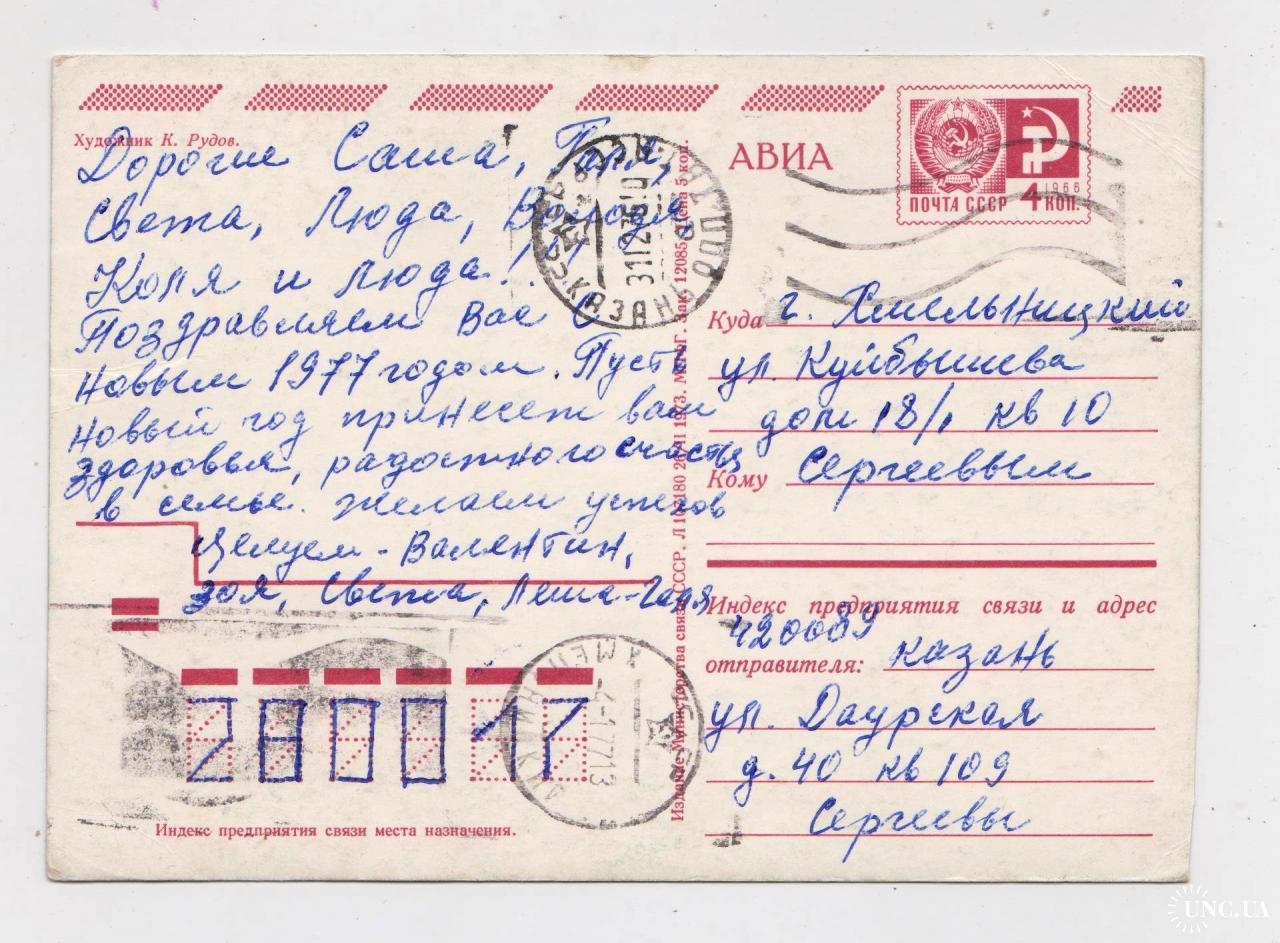 Художник К. Рудов.
Дорогие Саша, Галя,
Света, Люда, Володя
Коля и Люда!!!
Поздравляем Вас с
новым 1977 годом. Пусть
новый год принесет вам
здоровья, радостного счастья
в семье. желаем успехов
Целуем - Валентин,
зоя, Света, Леша-Галя
Индекс предприятия связи места назначения.
280017
КАЗАНЬ
Издание Министерства связи СССР.
1973. МПФГ. Зак. 12085. Цена 5 коп.
АВИА
ПОЧТА СССР 4 КОП.
1966
Куда г. Хмельницкий
ул. Куйбышева
дом 18/1 кв 10
Кому Сергеевым
Индекс предприятия связи и адрес
420089
отправителя: Казань
ул. Даурская
д. 40 кв 109
Сергеевы
UNC.UA